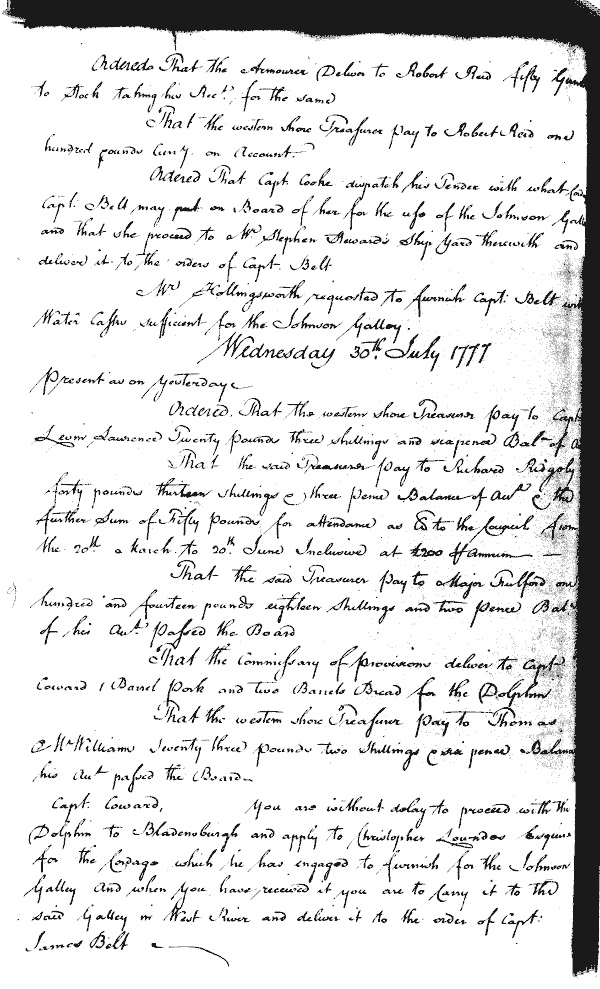 Ordered That the Armourer Deliver to Robert Reid fifty Guns
to Stock taking his Rect. for the same
That the western shore Treasurer pay to Robert Reid one
hundred pounds Curry. on Account.
Ordered That Capt. Cooke dispatch his Tender with what
Capt. Belt may put on Board of her for the use of the Johnson Galley
and that she proceed to Mr Stephen Stewards Ship Yard therewith and
deliver it to the orders of Capt. Belt
Mr Hollingsworth requested to furnish Capt: Belt with
Water Casks sufficient for the Johnson Galley.
Wednesday 30th July 1777
Present as on Yesterday
Ordered, That the western shore Treasurer pay to Capt
Levin Lawrence Twenty pounds three shillings and sixpence Bale. of
That the said Treasurer pay to Richard Ridgely
forty pounds thirteen shillings & three pence Balance of Acct. & the
further Sum of Fifty Pounds for attendance as to the Council from
the 20th March to 20th June Inclusive at £200 annum
That the said Treasurer pay to Major Fulford one
hundred and fourteen pounds eighteen Shillings and two pence Bale.
of his Acct. passed the Board
That the Commissary of provisions deliver to Capt
Coward 1 Barrel Pork and two Barrels Bread for the Dolphin
That the western shore Treasurer pay to Thomas
McWilliams Seventy three pounds two shillings & six pence Balance
his Acct passed the Board
Capt. Coward, You are without delay to proceed with the
Dolphin to Bladensburgh and apply to Christopher Lowndes Esquire
for the Cordage which he has engaged to furnish for the Johnson
Galley And when you have received it you are to Carry it to the
said Galley in West River and deliver it to the order of Capt:
James Belt